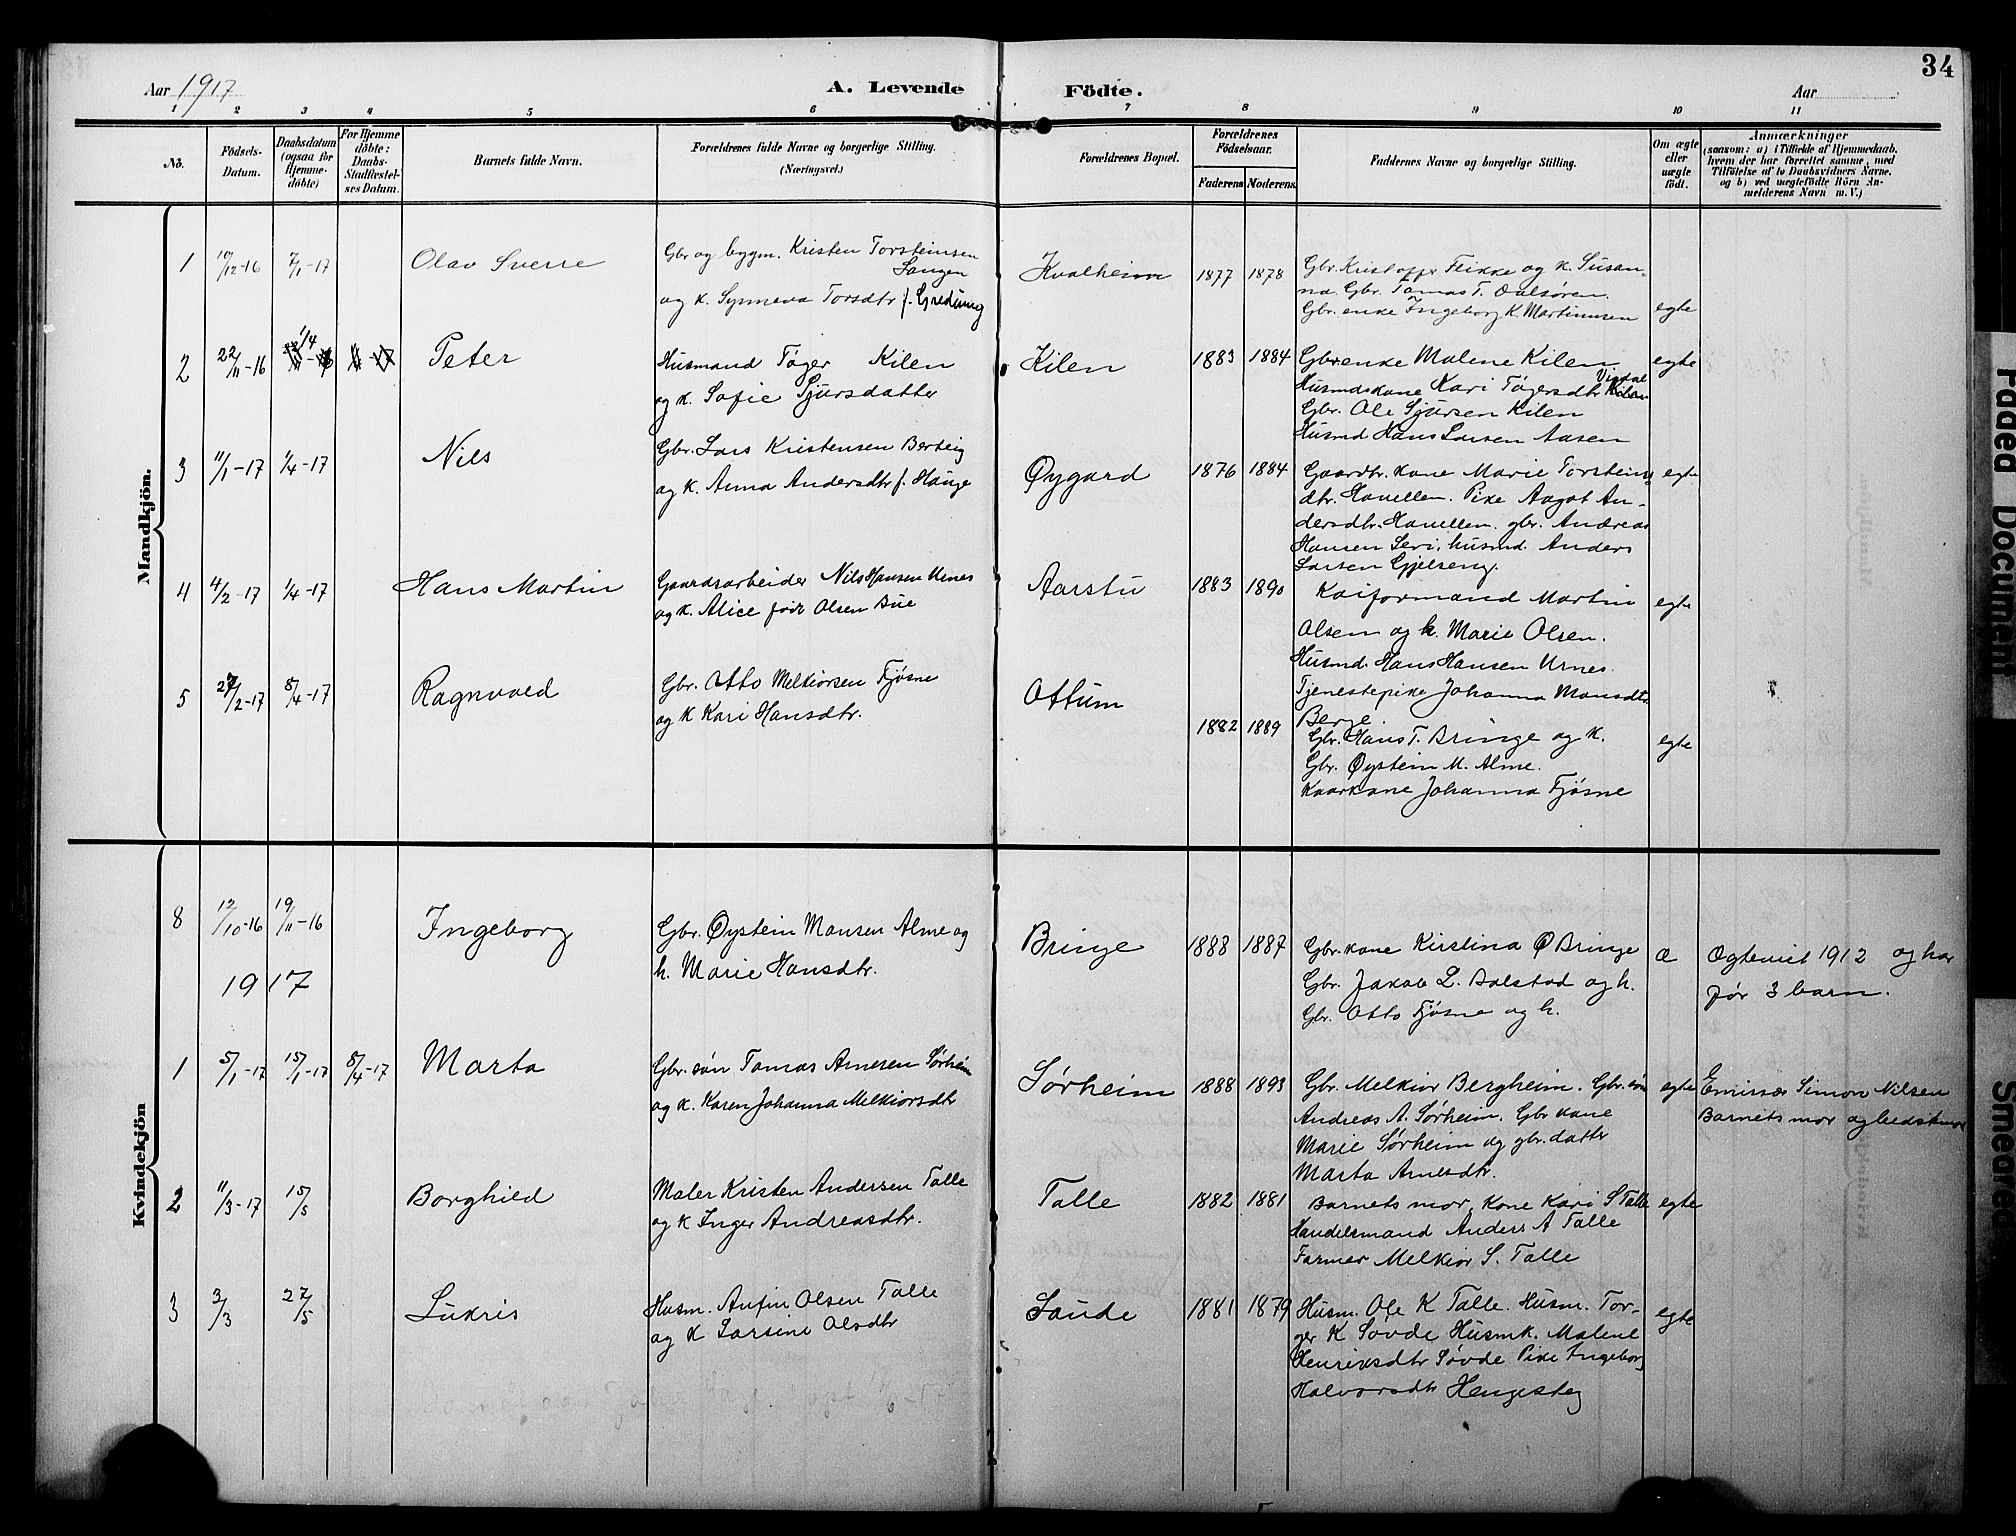 34
Aar 1917
A. Levende Födte.
Aar
1 2 3 4 5 6 7 8 9 10 11
No.
Födsels-Datum.
Daabsdatum (ogsaa for Hjemme-döbte)
For Hjemme döbte: Daabs-Stadfæstel-ses Datum.
Barnets fulde Navn.
Forældrenes fulde Navne og borgerlige Stilling. (Næringsvei.)
Forældrenes Bopæl.
Forældrenes Födselsaar.
Faderens Moderens
Faddernes Navne og borgerlige Stilling.
Om ægte eller uægte födt.
Anmærkninger
(saasom: a) i Tilfælde af Hjemmedaab,
hvem der har forrettet samme, med
Tilföielse af to Daabsvidners Navne,
og b) ved uægtefödte Börn An-
melderens Navn m. V.)
Mandkjön.
1 10/12-16 7/1-17 Olav Sverre
Gbr og bygm. Kristen Torsteinsen
Langen
og k. Synneva Torsdtr f. Gredung
Kvalheim 1877 1878
Gbr. Kristoffer Flikke og k. Susan-
na. Gbr. Tomas T. Dalsøren.
Gbr. enke Ingeborg K. Martinusen
egte
2 22/11-16 1/4 Peter
Husmand Tøger Kilen
og k. Sofie Sjursdatter
Kilen 1883 1884
Gbrenke Malene Kilen
Husmdskone Kari Tøgersdtr
Gbr. Ole Sjursen Kilen
Husmd Hans Larsen Aasen
egte
3 11/1-17 1/4-17 Nils
Gbr. Lars Kristensen Berteig
og k. Anna Andersdtr f. Hauge
Øygard 1876 1884
Gaardbr. kone Marie Torsteins
dtr. Havellen. Pike Aagot An-
dersdtr. Havellen. gbr. Andreas
Hansen Leri, husmd. Anders
Larsen Gjelseng.
egte
4 4/2-17 1/4-17 Hans Martin
Gaardsarbeider Nils Hansen Urnes
og k. Alice født Olsen Bue
Aarstu 1883 1890
Kaiformand Martin
Olsen og k. Marie Olsen.
Husmd. Hans Hansen Urnes.
Tjenestepike Johanna Monsdtr.
Berge.
egte
5 27/2-17 8/4-17 Ragnvald
Gbr. Otto Melkiorsen Fjøsne
og k Kari Hansdtr.
Ottum 1882 1889
Gbr. Hans T. Bringe og k.
Gbr. Øystein M. Alme.
Kaarkone Johanna Fjøsne
egte
Kvindekjön
8 12/10-16 19/11-16 Ingeborg
Gbr. Øystein Monsen Alme og
h. Marie Hansdtr.
Bringe 1888 1887
Gbr. kone Kirstina Ø Bringe
Gbr. Jakob L. Bolstad og h.
Gbr. Otto Fjøsne og h.
æ
Ogteviet 1912 og har
før 3 barn.
1917
1 5/1-17 15/1-17 8/4-17 Marta
Gbr. søn Tomas Arnesen Sørheim
og k. Karen Johanna Melkiorsdtr
Sørheim 1888 1893
Gbr. Melkior Bergheim. Gbr. søn
Andreas A. Sørheim. Gbr kone
Marie Sørheim og gbr. datter
Marta Arnesdtr.
egte
Emissær Simon Nilsen
Barnets mor og bedstemor
2 11/3-17 15/5 Borghild
Maler Kristen Andersen Talle
og k Inger Andreasdtr.
Talle 1882 1881
Barnets mor, Kone Kari S Talle
Handelsmand Anders A Talle
Farmer Melkior S. Talle
egte
3 3/3 27/5 Lukris
Husm. Anfin Olsen Talle
og k Larsine Olsdtr
Saude 1881 1879
Husm. Ole K Talle. Husm. Tor-
ger K Søvde Husmk. Malene
Henriksdtr Søvde Pike Ingeborg
Halvorsdtr Hengesteg
egte
Faded Document
Smeared